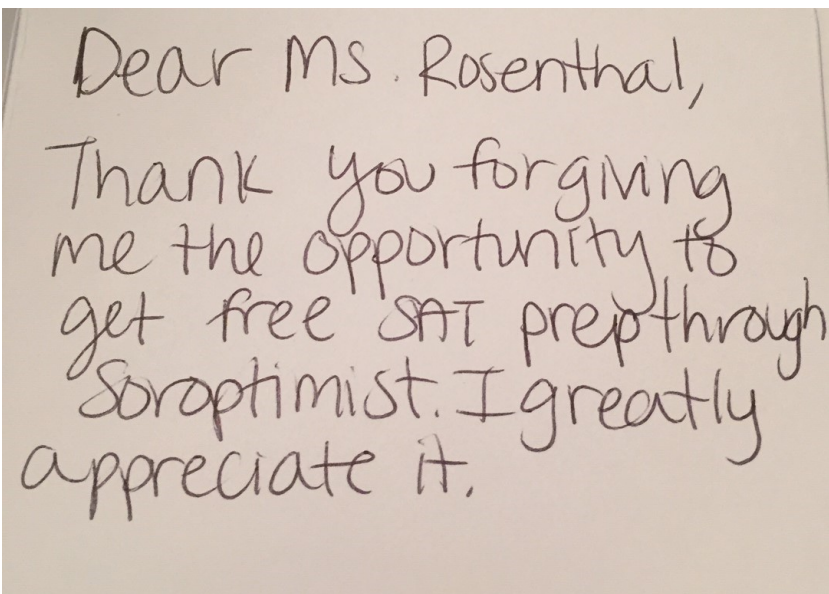 Dear Ms. Rosenthal,
Thank you for giving
me the opportunity to
get free SAT prep through
Soroptimist. I greatly
appreciate it.